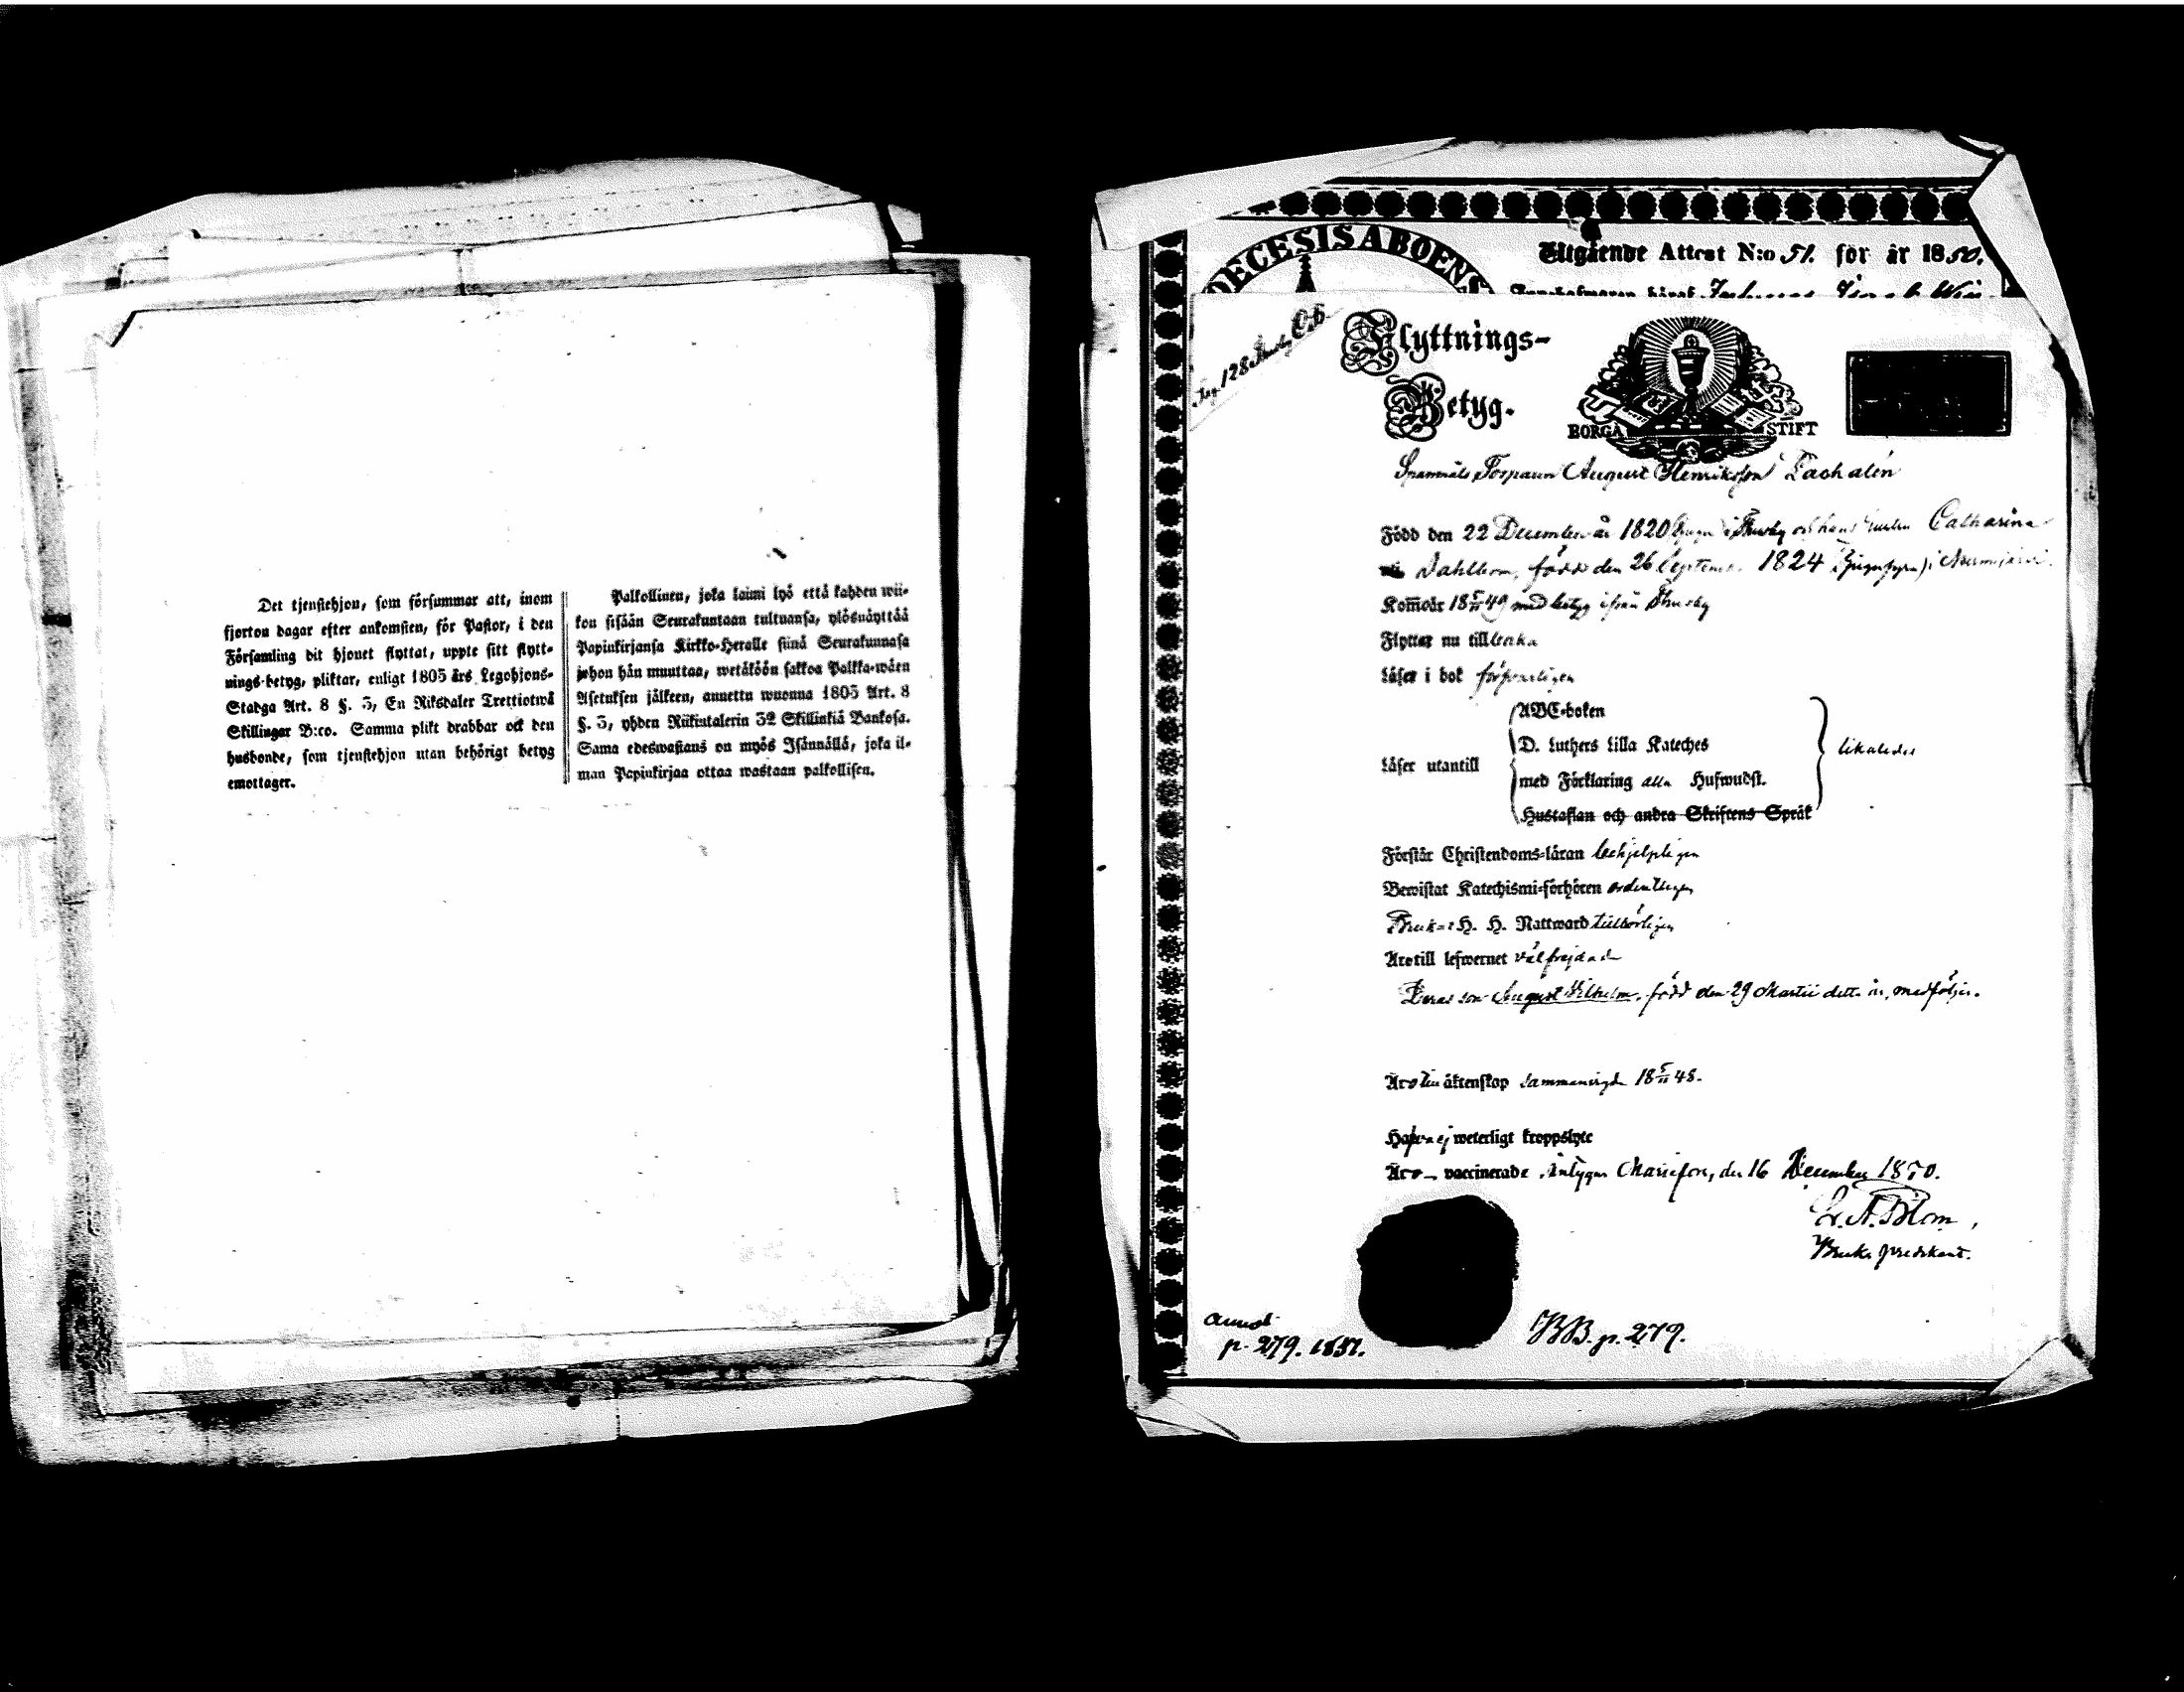 Det tjenstehjon, som försummar att, inom
fjorton dagar efter ankomsten, för Pastor, i den
Församling dit hjonet flyttat, uppte sitt flytt-
nings-betyg, pliktar, enligt 1805 års Legohjons-
Stadga Art. 8 §. 3, En Riksdaler Trettiotwå
Skillingar B:co. Samma plikt drabbar ock den
husbonde, som tjenstehjon utan behörigt betyg
emottager.
Palkollinen, joka laimi lyö että kahden wii-
kon sisään Seurakuntaan tultuansa, ylösnäyttää
Papinkirjansa Kirkko-Heralle siinä Seurakunnasa
johon hän muuttaa, wetäköön sakkoa Palkka-wäen
Asetuksen jälkeen, annettu wuonna 1805 Art. 8
§. 3, yhden Riikintalerin 32 Skillinkiä Bankosa.
Sama edeswastaus on myös Isännällä, joka il-
man Papinkirjaa ottaa wastaan palkollisen.
DECESIS ABOENS
Utgående Attest N:o 51. för år 1850.
128 Thusby
Flyttnings-
Betyg.
BORGÅ STIFT
August Henriksson
Född den 22 December år 1820 i Thusby och hans hustru Catharina
Dahlbom, född den 26 Septemb. 1824 i Nurmijärvi.
Kommo år 18 5/11 49 med betyg ifrån Thusby
Flyttar nu till
Läser i bok försvarligen
Läser utantill
ABC-boken
D. Luthers Lilla Kateches
med Förklaring alla Hufwudst.
Hustaflan och andra Skriftens Språk
likaledes
Förstår Christendoms-läran behjelpligen
Bewistat Katechismi-förhören ordentligen
Bruka H. H. Nattward
Äro till lefwernet välfrejdade
Deras son August Vilhelm, född den 29 Martii detta år, medföljer.
Äro till äktenskap sammanvigde 18 5/11 48.
Hafva ej weterligt kroppslyte
Äro vaccinerade, intygar Mariefors, den 16 December 1850.
A. Blom,
Bruks predikant.
annot.
p. 279. 1851.
BB. p. 279.